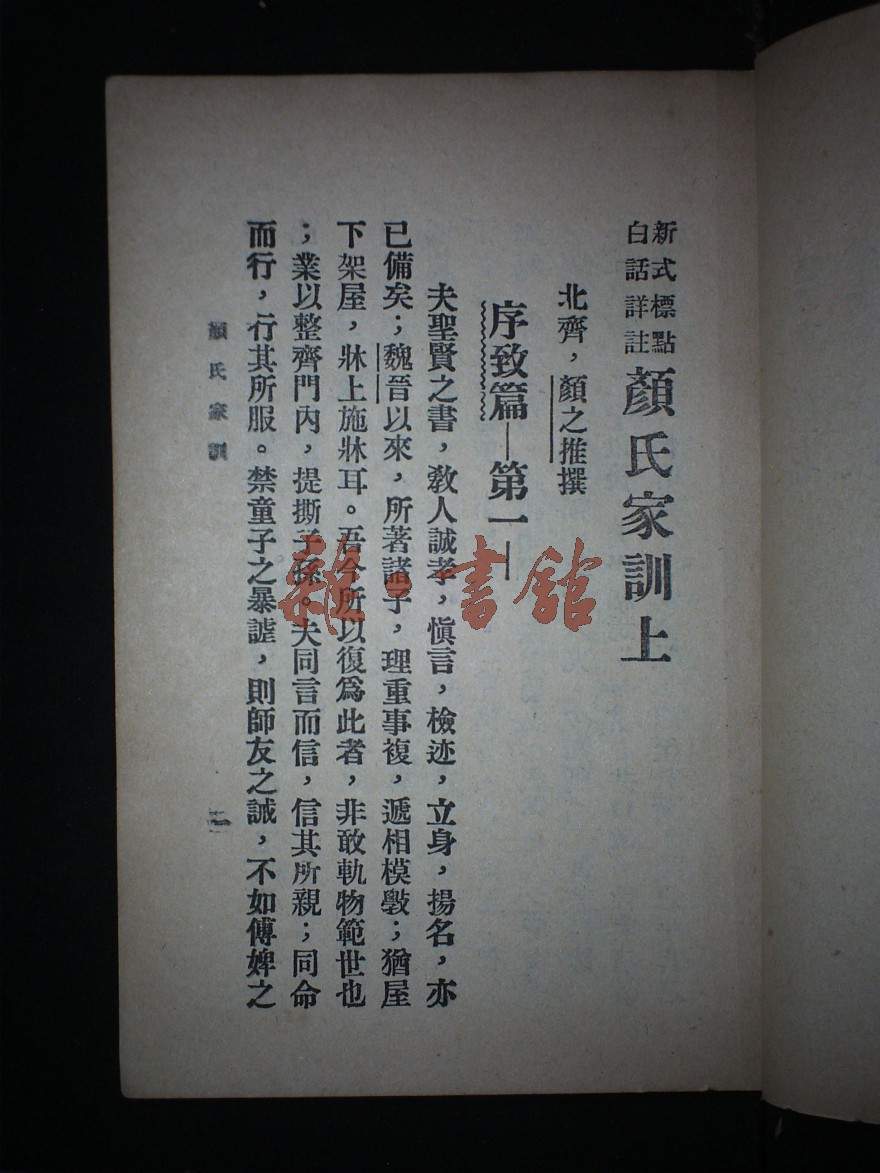 新式標點
白話詳註
顏氏家訓上
北齊，顏之推撰
序致篇—第一—
夫聖賢之書，敎人誠孝，愼言，檢迹，立身，揚名，亦
已備矣；魏晉以來，所著諸子，理重事複，遞相模斆；猶屋
下架屋，牀上施牀耳。吾今所以復爲此者，非敢軌物範世也
；業以整齊門內，提撕子孫。夫同言而信，信其所親；同命
而行，行其所服。禁童子之暴謔，則師友之誡，不如傅婢之
顏氏家訓
二
雜·書館